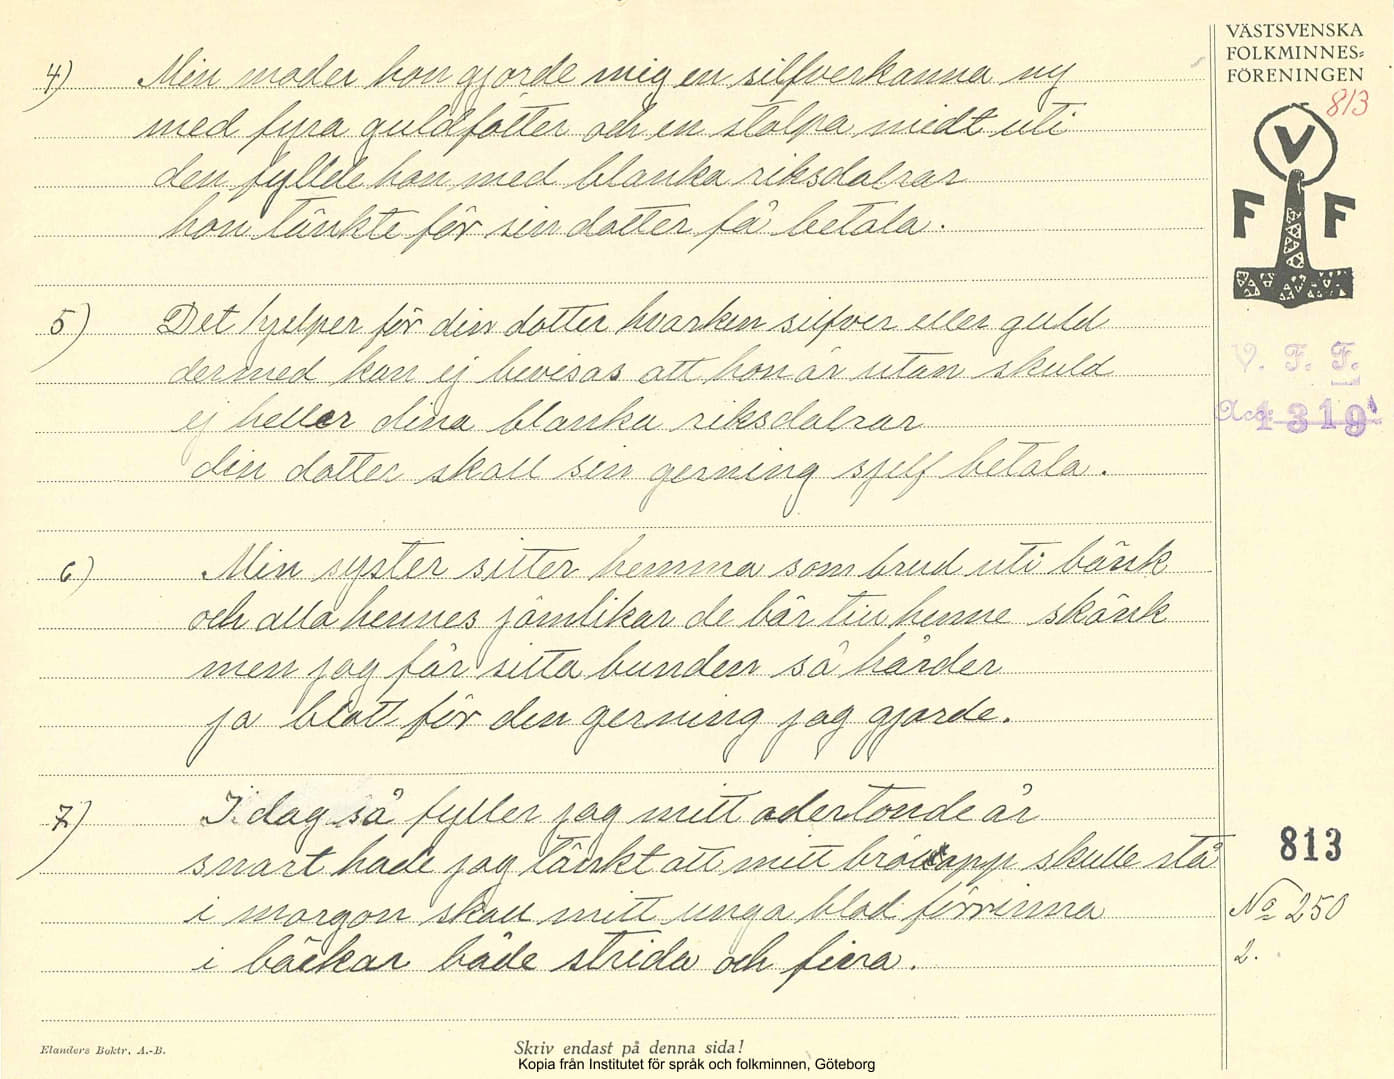 VÄSTSVENSKA
FOLKMINNES=
FÖRENINGEN
813
V
F F
V. F. F.
Acc. 1319
4) Min moder hon gjorde mig en silfverkanna ny
med fyra guldfötter och en stolpa midt uti
den fyllde hon med blanka riksdalrar
hon tänkte för sin dotter få betala.
5) Det hjelper för din dotter hvarken silfver eller guld
dermed kan ej bevisas att hon är utan skuld
ej heller dina blanka riksdalrar
din dotter skall sin gerning sjelf betala.
6) Min syster sitter hemma som brud uti bänk
och alla hennes jämlikar de bär till henne skänk
men jag får sitta bunden så hårder
ja blott för den gerning jag gjorde.
7) I dag så fyller jag mitt adertonde år
snart hade jag tänkt att mitt bröllopp skulle stå
i morgon skall mitt unga blod förrinna
i bäckar både strida och fiera.
813
No 250
2.
Elanders Boktr. A.-B.
Skriv endast på denna sida!
Kopia från Institutet för språk och folkminnen, Göteborg